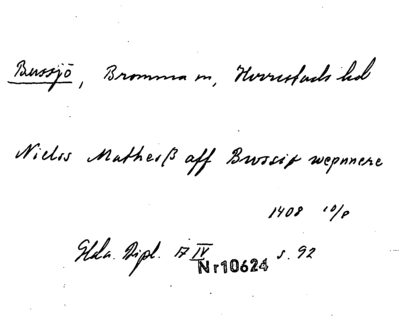 Bussjö, Bromma sn, Herrestads hd
Nielss Matheiß aff Brossiø wepnnere
1408 10/8
Glda. Dipl. 17 IV s. 92
Nr10624